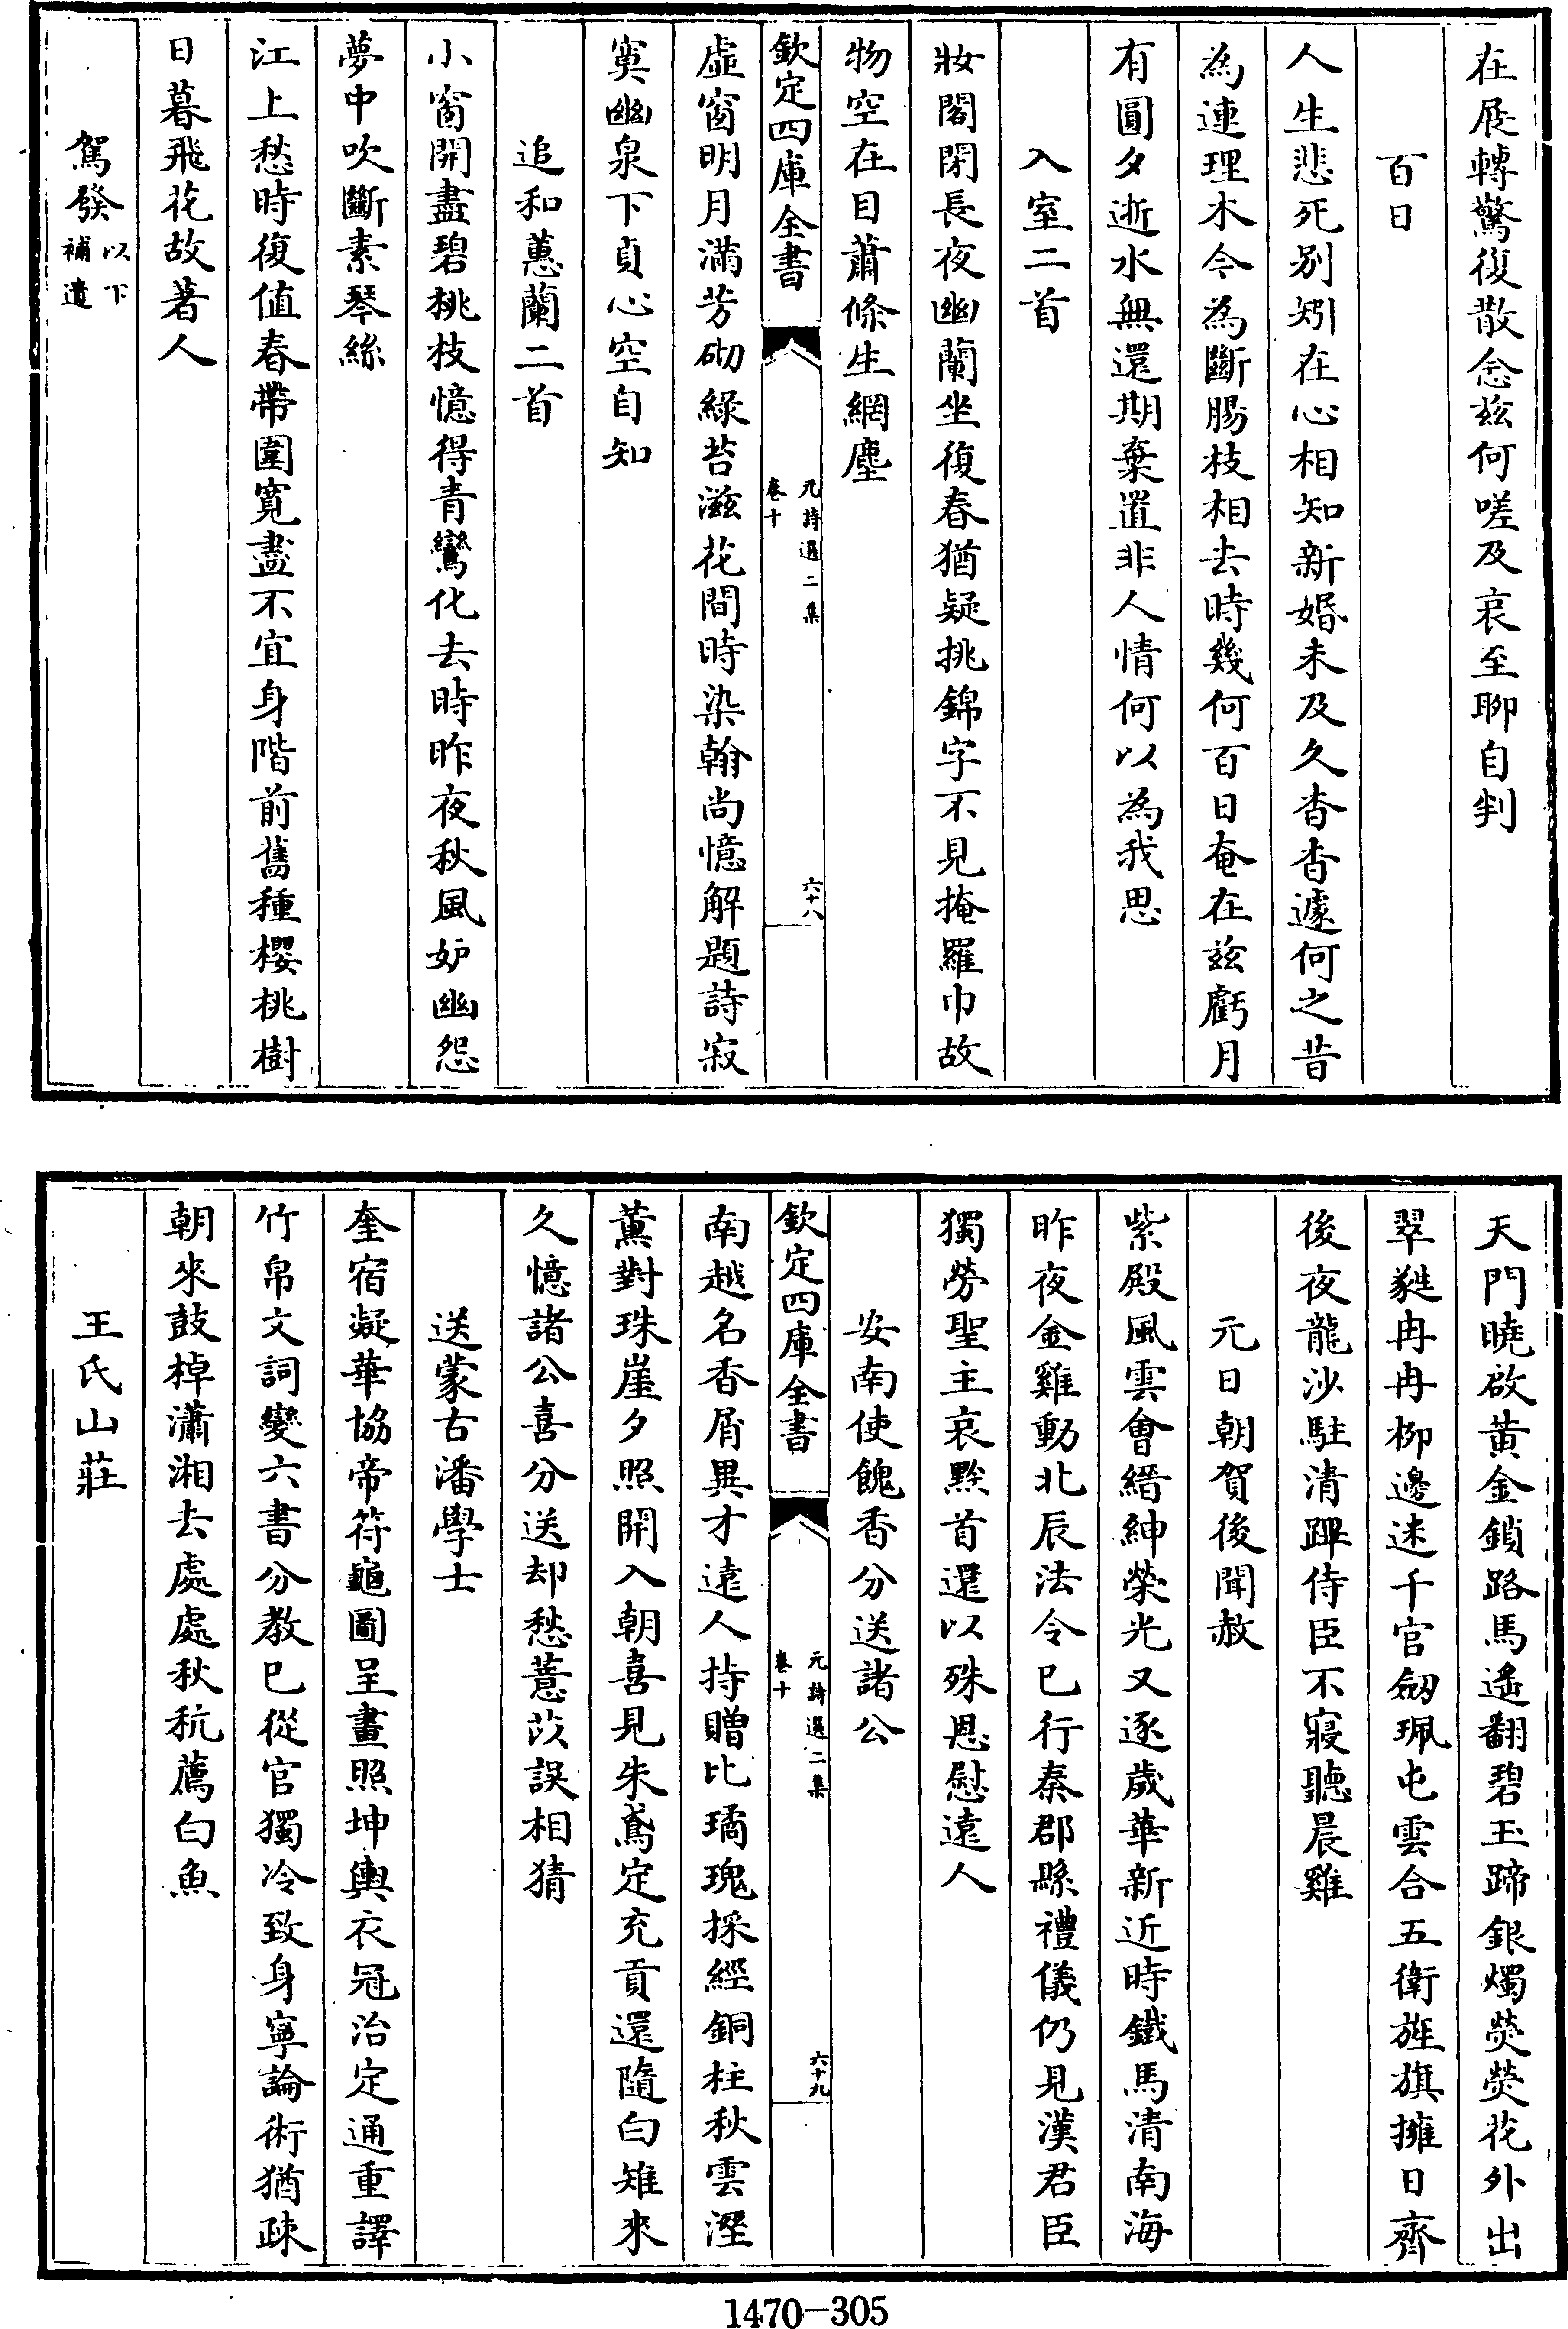 在展轉驚復散念茲何嗟及哀至聊自判
百日
人生悲死別矧在心相知新婚未及久杳杳遽何之昔
為連理木今為斷腸枝相去時幾何百日奄在茲虧月
有圓夕逝水無還期棄置非人情何以為我思
入室二首
妝閣閉長夜幽蘭坐復春猶疑挑錦字不見掩羅巾故
物空在目蕭條生網塵
欽定四庫全書
元詩選二集
卷十
六十八
虛窗明月滿芳砌綠苔滋花間時染翰尚憶解題詩寂
寞幽泉下貞心空自知
追和蕙蘭二首
小窗開盡碧桃枝憶得青鸞化去時昨夜秋風妒幽怨
夢中吹斷素琴絲
江上愁時復值春帶圍寬盡不宜身階前舊種櫻桃樹
日暮飛花故著人
駕發以下補遺
天門曉啟黃金鎖路馬遙翻碧玉蹄銀燭熒熒花外出
翠蕤冉冉柳邊迷千官劒珮屯雲合五衛旌旗擁日齊
後夜龍沙駐清蹕侍臣不寢聽晨雞
元日朝賀後聞赦
紫殿風雲會縉紳榮光又逐歲華新近時鐵馬清南海
昨夜金雞動北辰法令已行秦郡縣禮儀仍見漢君臣
獨勞聖主哀黔首還以殊恩慰遠人
安南使餽香分送諸公
欽定四庫全書
元詩選二集
卷十
六十九
南越名香屑異才遠人持贈比璚瑰採經銅柱秋雲溼
薰對珠崖夕照開入朝喜見朱鳶定充貢還隨白雉來
久憶諸公喜分送却愁薏苡誤相猜
送蒙古潘學士
奎宿凝華協帝符龜圖呈畫照坤輿衣冠治定通重譯
竹帛文詞變六書分教已從官獨冷致身寧論術猶疎
朝來鼓棹瀟湘去處處秋秔薦白魚
王氏山莊
1470-305